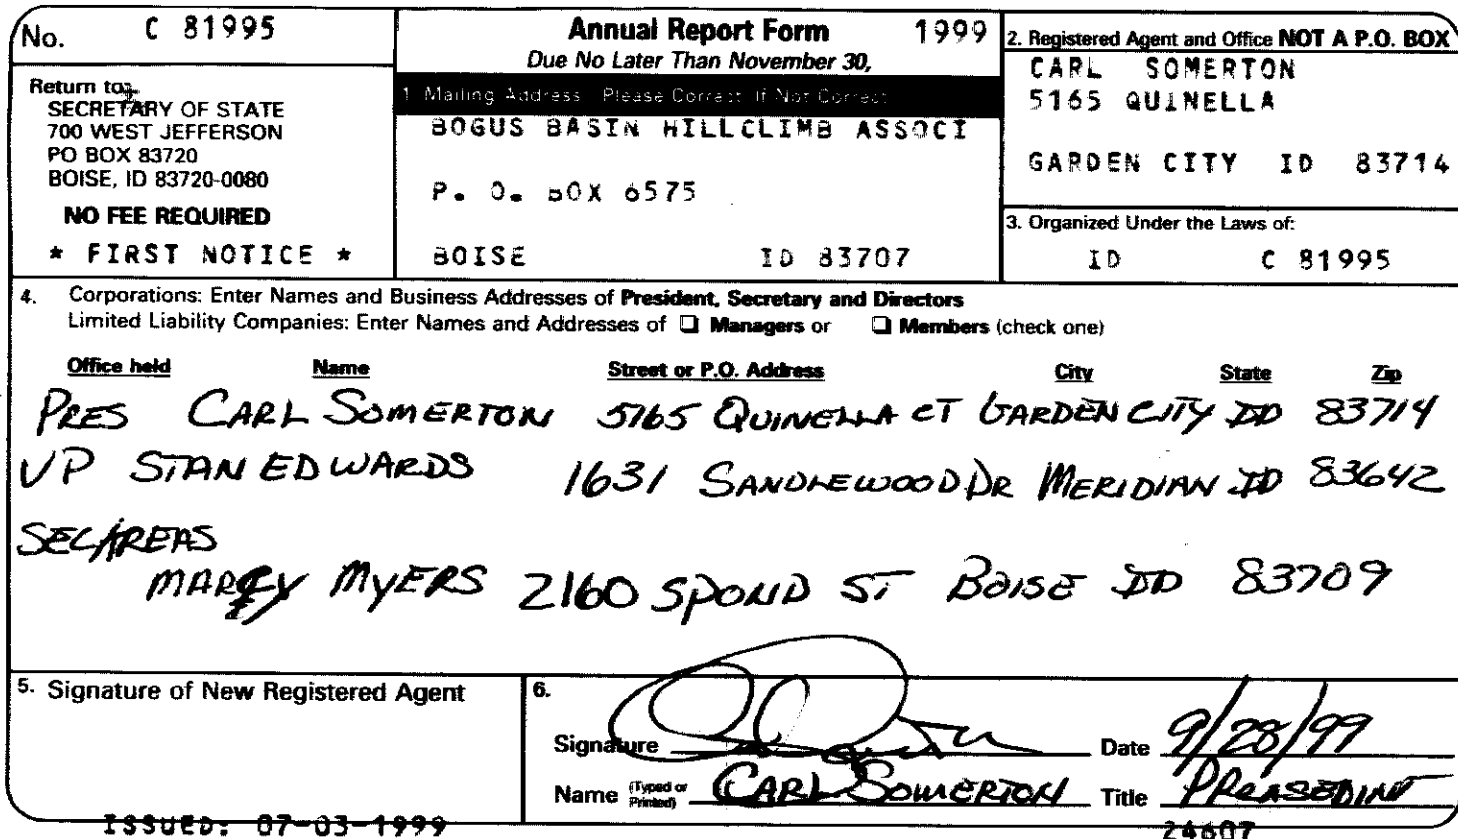 No. C 81995
Return to:
SECRETARY OF STATE
700 WEST JEFFERSON
PO BOX 83720
BOISE, ID 83720-0080
NO FEE REQUIRED
* FIRST NOTICE *
Annual Report Form 1999
Due No Later Than November 30,
1. Mailing Address: Please Correct If Not Correct
BOGUS BASIN HILLCLIMB ASSOCI
P. O. BOX 6575
BOISE ID 83707
2. Registered Agent and Office NOT A P.O. BOX
CARL SOMERTON
5165 QUINELLA
GARDEN CITY ID 83714
3. Organized Under the Laws of:
ID C 81995
4. Corporations: Enter Names and Business Addresses of President, Secretary and Directors
Limited Liability Companies: Enter Names and Addresses of ❑ Managers or ❑ Members (check one)
Office held Name Street or P.O. Address City State Zip
PRES CARL SOMERTON 5165 QUINELLA CT GARDEN CITY ID 83714
VP STAN EDWARDS 1631 SANDLEWOOD DR MERIDIAN ID 83642
SEC/TREAS
MYERS 2160 SPOND ST BOISE ID 83709
5. Signature of New Registered Agent
6.
Signature Date 9/28/99
Name (Typed or Printed) CARL SOMERTON Title PREASEDINT
ISSUED: 07-03-1999 24607